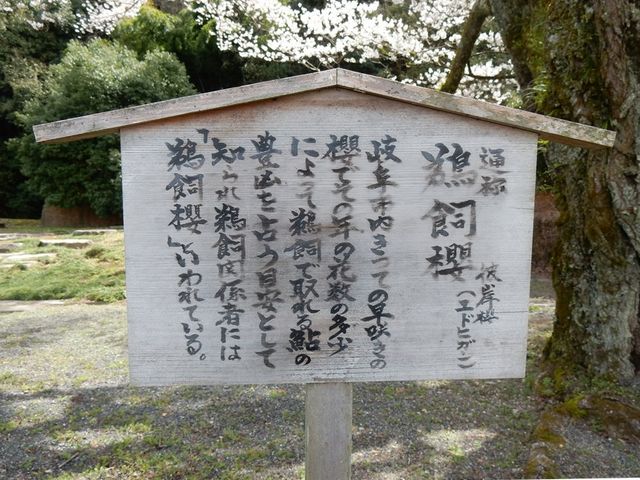 通称
鵜飼櫻
彼岸櫻
(エドヒガン)
岐阜市内きっての早咲きの
櫻でその年の花数の多少
によって鵜飼で取れる鮎の
豊凶を占う目安として
知られ鵜飼関係者には
「鵜飼櫻」といわれている。